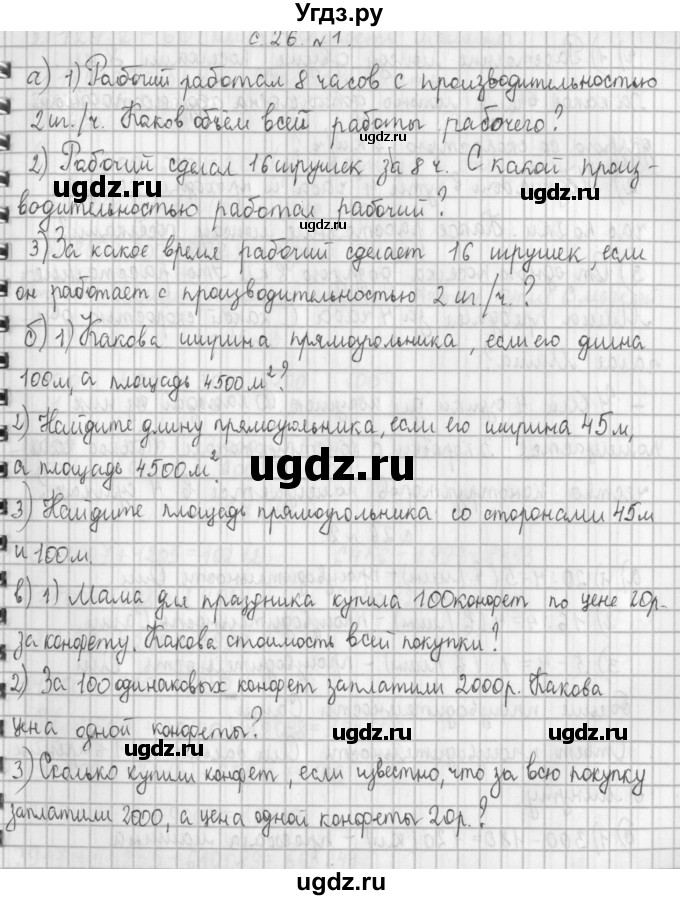 Угдз.ру
с. 26. №1.
а) 1) Рабочий работал 8 часов с производительностью
2 шт./ч. Каков объём всей работы рабочего?
ugdz.ru
2) Рабочий сделал 16 игрушек за 8 ч. С какой произ-
ugdz.ru ugdz.ru
водительностью работал рабочий?
3) За какое время рабочий сделает 16 игрушек, если
он работает с производительностью 2 шт./ч.?
ugdz.ru
б) 1) Какова ширина прямоугольника, если его длина
100м, а площадь 4500м²?
2) Найдите длину прямоугольника, если его ширина 45м,
а площадь 4500м².
ugdz.ru
3) Найдите площадь прямоугольника со сторонами 45м
и 100м.
ugdz.ru
в) 1) Мама для праздника купила 100 конфет по цене 20р.
за конфету. Какова стоимость всей покупки?
ugdz.ru
2) За 100 одинаковых конфет заплатили 2000р. Какова
цена одной конфеты?
ugdz.ru ugdz.ru
3) Сколько купили конфет, если известно, что за всю покупку
заплатили 2000, а цена одной конфеты 20р.?
ugdz.ru
ugdz.ru